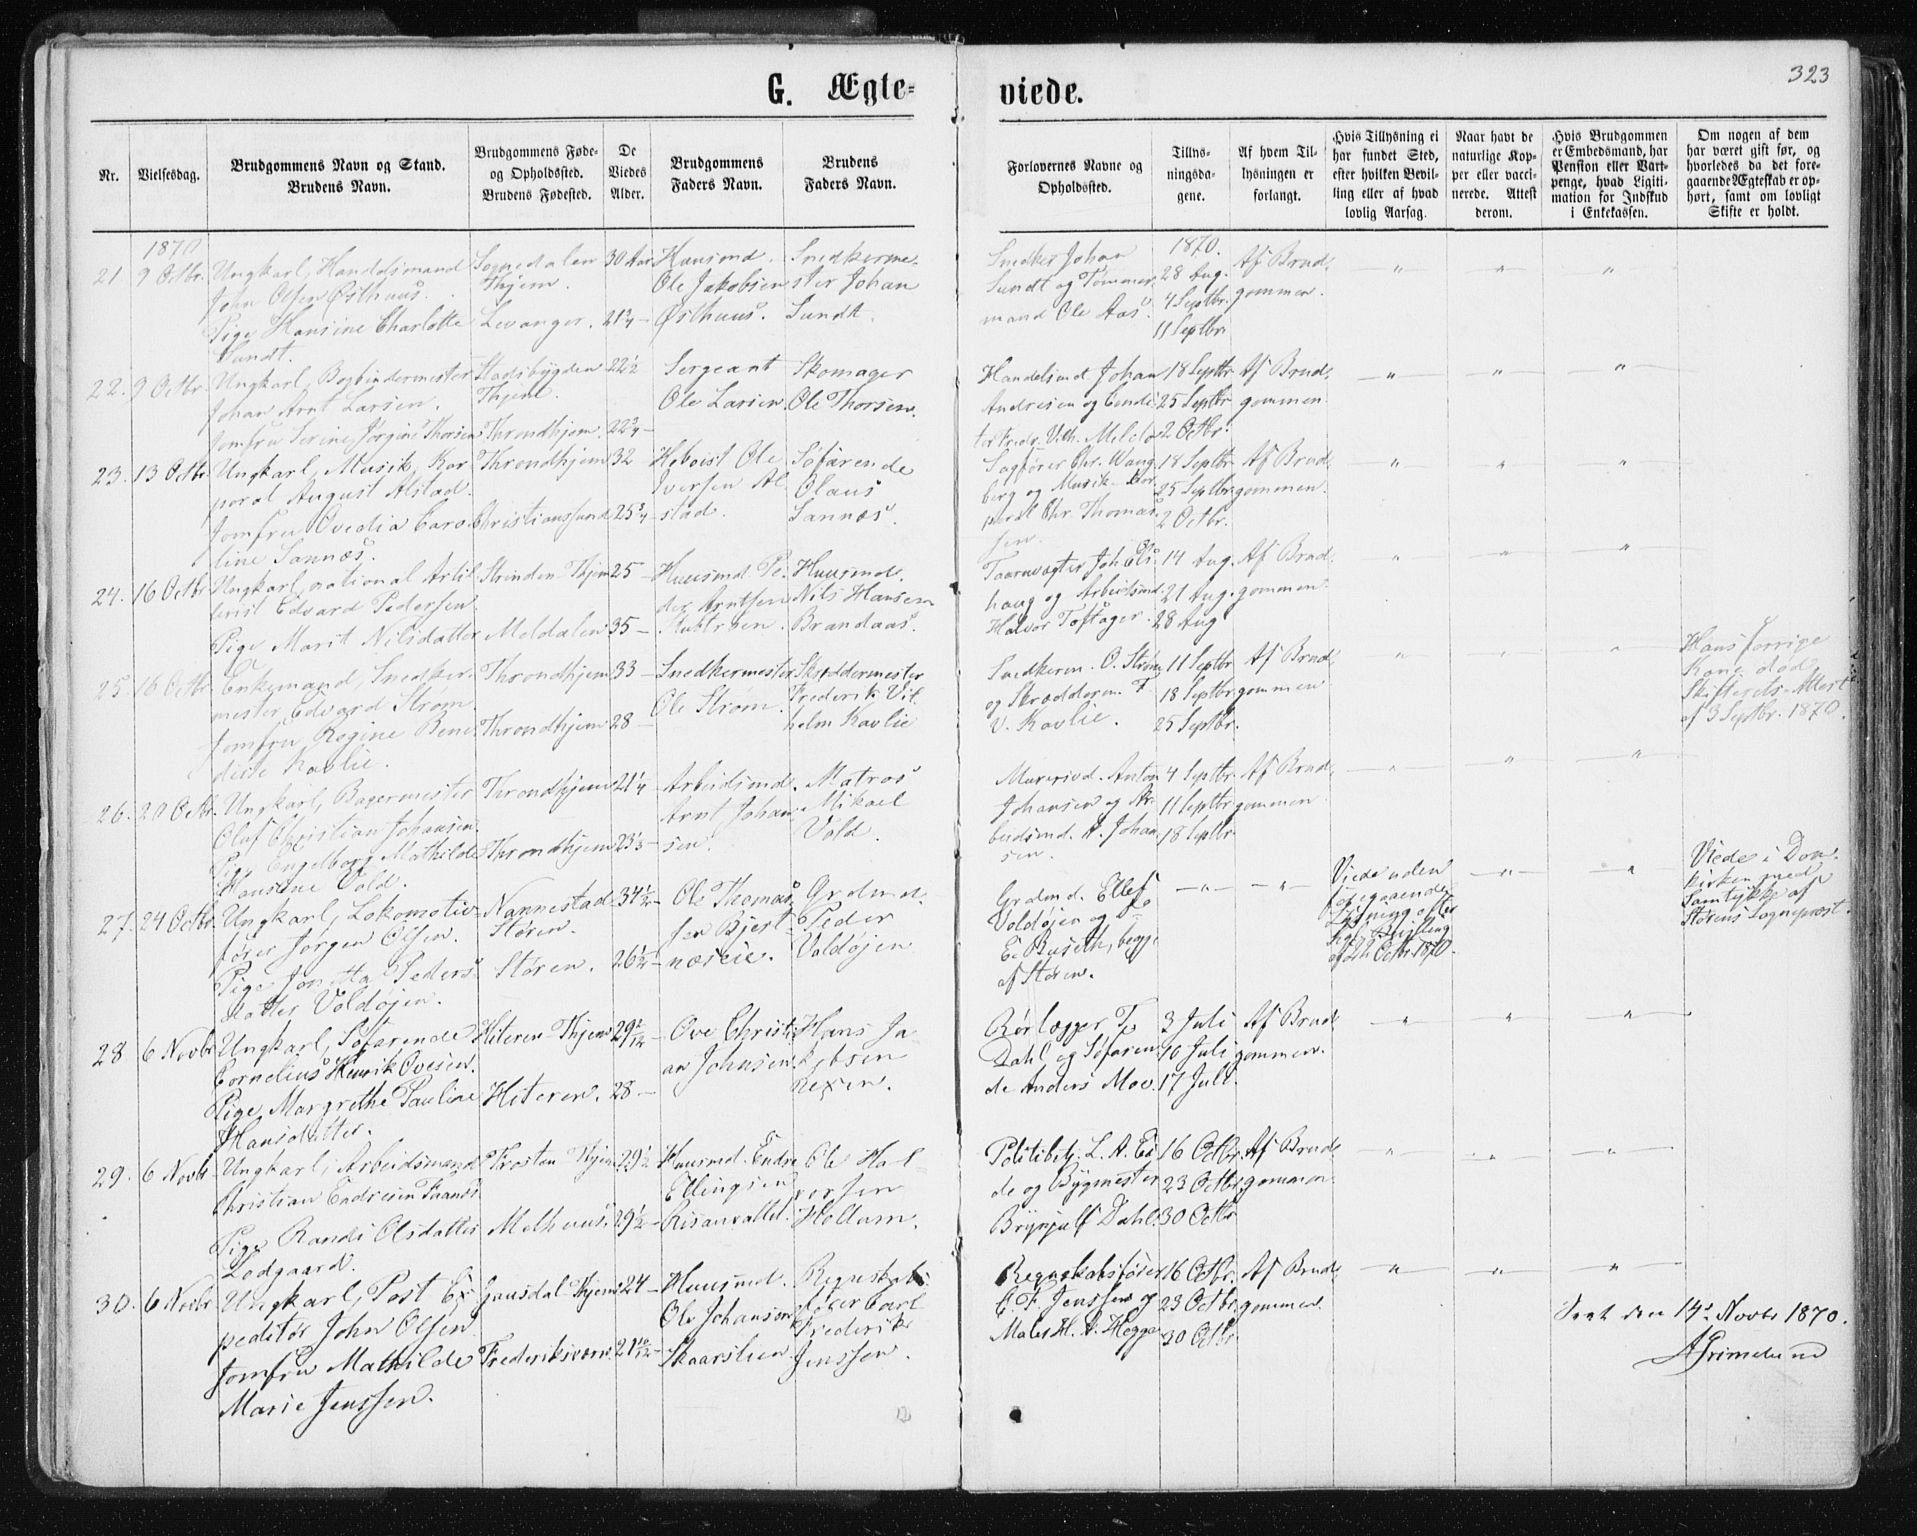 323
G. Ægte=
viede.
Nr.
Vielsesdag.
Brudgommens Navn og Stand.
Brudens Navn.
Brudgommens Føde-
og Opholdssted.
Brudens Fødested.
De
Viedes
Alder.
Brudgommens
Faders Navn.
Brudens
Faders Navn.
Forlovernes Navne og
Opholdssted.
Tillys-
ningsda-
gene.
Af hvem Til-
lysningen er
forlangt.
Hvis Tillysning ei
har fundet Sted,
efter hvilken Bevil-
ling eller af hvad
lovlig Aarsag.
Naar havt de
naturlige Kop-
per eller vacci-
nerede. Attest
derom.
Hvis Brudgommen
er Embedsmand, har
Pension eller Vart-
penge, hvad Ligiti-
mation for Indskud
i Enkekassen.
Om nogen af dem
har været gift før, og
hvorledes da det fore-
gaaende Ægteskab er op-
hørt, samt om lovligt
Skifte er holdt.
1870
21 9 Octbr. Ungkarl, Handelsmand
John Olsen Østhuus.
Pige Hansine Charlotte
Sundt.
Sognedalen
Thjem.
Levanger.
30 Aar
21 3/4 —
Huusmd.
Ole Jakobsen
Østhuus.
Snedkerme-
ster Johan
Sundt.
Snedker Johan
Sundt og Tømmer
mand Ole Aas.
1870.
28 Aug.
4 Septbr.
11 Septbr.
Af Brud,
gommen.
22. 9 Octbr. Ungkarl, Bogbindermester
Johan Arnt Larsen.
Jomfru Serine Jørgine Thorsen
Stadsbygden
Thjem.
Throndhjem.
22 1/2
22 3/4 —
Sergeant
Ole Larsen.
Skomager
Ole Thorsen.
Handelsmd Johan
Andresen og
Fredr. Vilh. Melclo
18 Septbr
25 Septbr
2 Octbr.
Af Brud,
gommen.
23. 13 Octbr Ungkarl, Musik, Kor
poral August Alstad.
Jomfru Ovedia Caro-
line Sannæs.
Throndhjem
Christianssund
32
25 3/4
Hoboist Ole
Iversen Al
stad.
Søfarende
Olaus
Sannæs.
Sagfører Chr. Wang
berg og Musik-Kor
poral Chr. Thomas
sen.
18 Septbr
25 Septbr
2 Octbr.
Af Brud,
gommen.
24. 16 Octbr Ungkarl national Artil
lerist Edvard Pedersen.
Pige Marit Nilsdatter
Strinden Thjem
Meldalen
25 —
35 —
Huusmd. Pe-
der Arntsen
Huusmd.
Nils Hansen
Brandaas.
Taarnvægter Joh
haug og Arbeidsmd.
Halvor Toftager.
14 Aug.
21 Aug.
28 Aug
Af Brud
gommen.
25. 16 Octbr. Enkemand, Snedker-
mester Edvard Strøm.
Jomfru Regine Bene-
dicte Kavlie.
Throndhjem
Throndhjem
33 —
28 —
Snedkermester
Ole Strøm.
Skræddermester
Frederik Vil-
helm Kavlie
Snedkerm. O. Strøm
og Skrædderm. F.
V. Kavlie.
11 Septbr
18 Septbr
25 Septbr.
Af Brud,
gommen
Hans forrige
Kone død
Skifterets-Attest
af 3 Septbr. 1870.
26. 20 Octbr. Ungkarl, Bagermester
Oluf Christian Johansen.
Pige Engelborg Mathilde
Hansine Vold.
Throndhjem
Throndhjem
21 1/4
23 1/3 —
Arbeidsmd.
Arnt Johan-
sen.
Matros
Mikael
Vold.
Murersvd. Anton
Johansen og Ar-
beidsmd. A. Johan
sen.
4 Septbr
11 Septbr
18 Septbr
Af Brud,
gommen
27. 24 Octbr. Ungkarl, Lokomotiv-
fører Jørgen Olsen.
Pige Jonetta Peders
datter Voldøjen.
Nannestad
Støren.
Støren.
34 1/2 —
26 1/2 —
Ole Thomas
sen Bjert-
næseie.
Grdmd.
Peder
Voldøjen
Grdmd. Ellef
Voldøjen og
E. Buseth, begge
af Støren.
Viede uden
foregaaende
Lysning efter
Kgl. Bevilling
af 22 Octbr. 1870.
Viede i Dom-
kirken med
Samtykke af
Størens Sognepræst.
28 6 Novbr Ungkarl, Søfarende
Cornelius Henrik Ovesen.
Pige Margrethe Pauline
Hansdatter.
Hiteren Thjem
Hiteren.
29 2/12
28 —
Ove Christi
an Johnsen.
Hans Ja-
kobsen
Rexen.
Rørlægger T.
Dahl og Søfaren
de Anders Moe.
3 Juli
10 Juli
17 Juli.
Af Brud,
gommen.
29. 6 Novbr Ungkarl, Arbeidsmand
Christian Endresen
Pige Randi Olsdatter
Lodgaard.
Frosten Thjem
Melhuus.
29 1/2
29 1/2 —
Huusmd. Endre
Ellingsen
Risanvallet.
Ole Hal-
vorsen
Hollum.
Politibetj. L. A. Ei
de og Bygmester
Brynjulf Dahl.
16 Octbr.
23 Octbr
30 Octbr
Af Brud,
gommen.
30. 6 Novbr Ungkarl, Post Ex-
peditør John Olsen
Jomfru Mathilde
Marie Jenssen.
Gausdal Thjem
Frederiksværn.
24 —
21 10/12 —
Huusmd.
Ole Johansen
Skaarslien
Regnskabs
fører Carl
Frederik
Jenssen.
Regnskabsfører
C. F. Jenssen og
Maler H. A. Hegge
16 Octbr.
23 Octbr.
30 Octbr.
Af Brud,
gommen.
Seet den 14de Novbr 1870.
A Grimelund